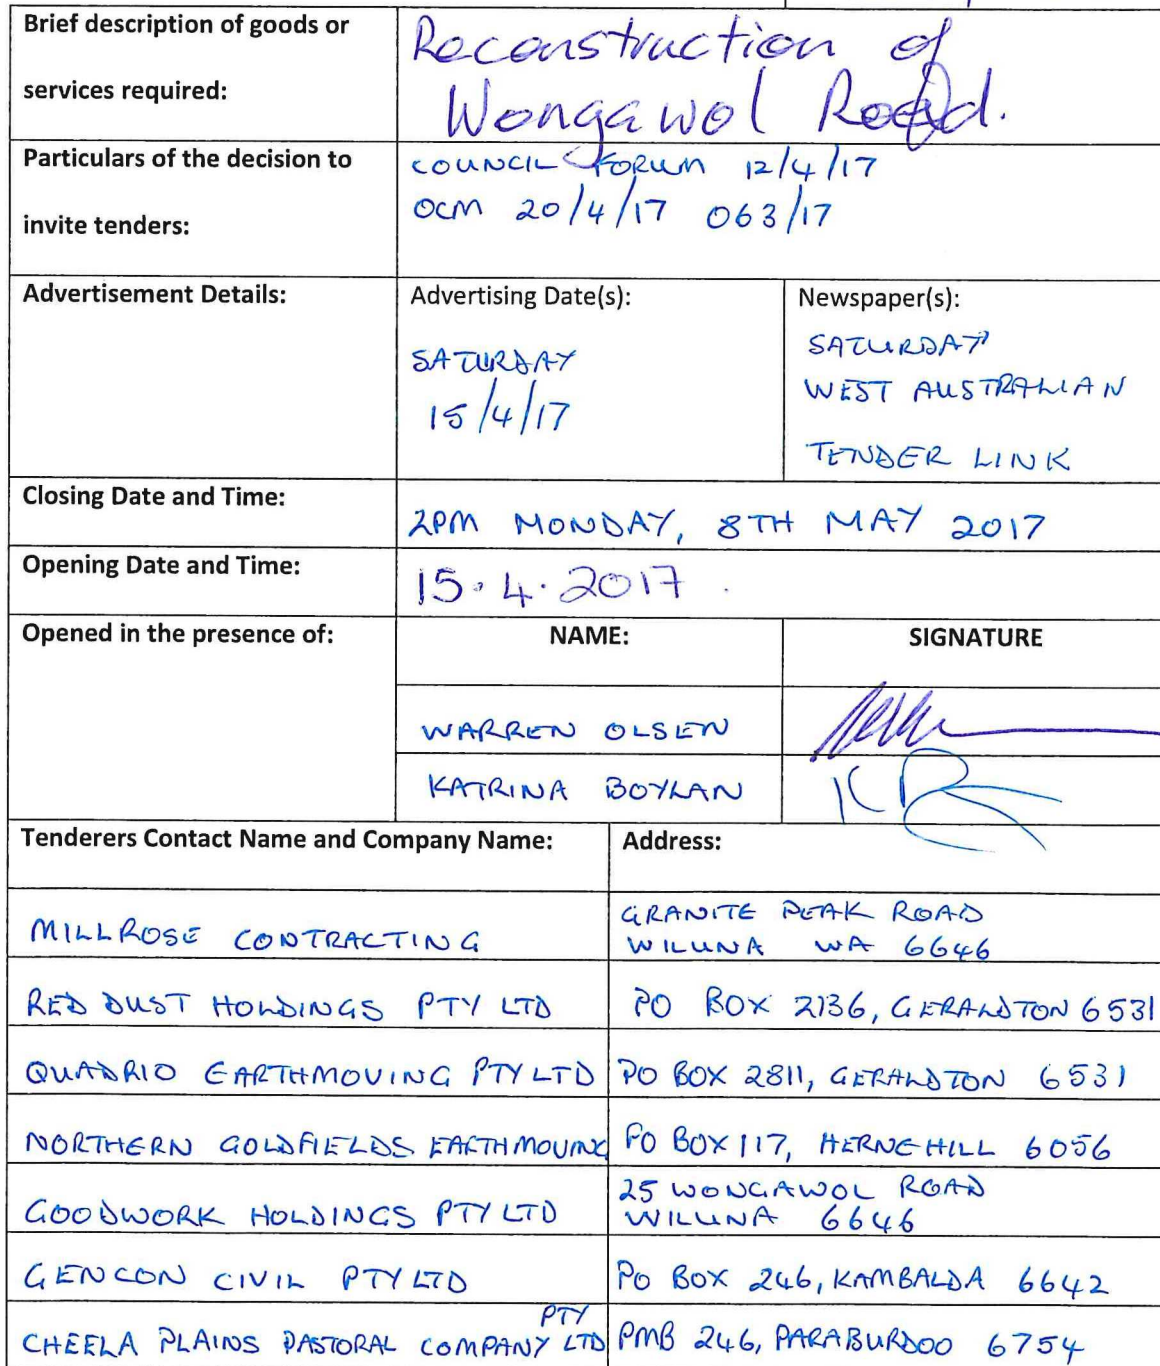 Brief description of goods or
services required:
Reconstruction of
Wongawol Road.
Particulars of the decision to
invite tenders:
COUNCIL FORUM 12/4/17
OCM 20/4/17 063/17
Advertisement Details:
Advertising Date(s):
SATURDAY
15/4/17
Newspaper(s):
SATURDAY
WEST AUSTRALIAN
TENDER LINK
Closing Date and Time:
2PM MONDAY, 8TH MAY 2017
Opening Date and Time:
15.4.2017.
Opened in the presence of:
NAME:
SIGNATURE
WARREN OLSEN
KATRINA BOYLAN
Tenderers Contact Name and Company Name:
Address:
MILLROSE CONTRACTING
GRANITE PEAK ROAD
WILUNA WA 6646
RED DUST HOLDINGS PTY LTD
PO BOX 2136, GERALDTON 6531
QUADRIO EARTHMOVING PTY LTD
PO BOX 2811, GERALDTON 6531
NORTHERN GOLDFIELDS EARTHMOVING
PO BOX 117, HERNE HILL 6056
GOODWORK HOLDINGS PTY LTD
25 WONGAWOL ROAD
WILUNA 6646
GENCON CIVIL PTY LTD
PO BOX 246, KAMBALDA 6642
CHEELA PLAINS PASTORAL COMPANY PTY LTD
PMB 246, PARABURDOO 6754